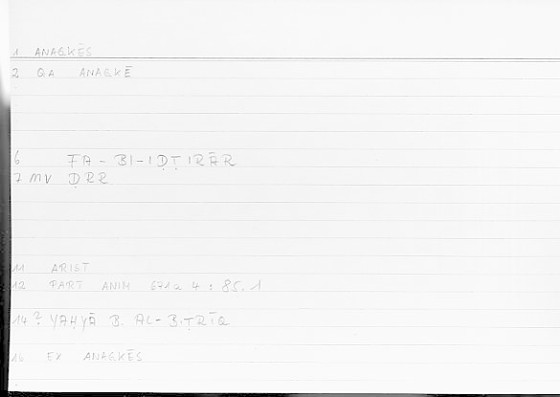 1 ANAGKĒS
2 QA ANAGKĒ
6 FA-BI-IḌṬIRĀR
7 MV ḌRR
11 ARIST
12 PART ANIM 671a 4 : 85.1
14? YAḤYĀ B. AL-BIṬRĪQ
16 EX ANAGKĒS